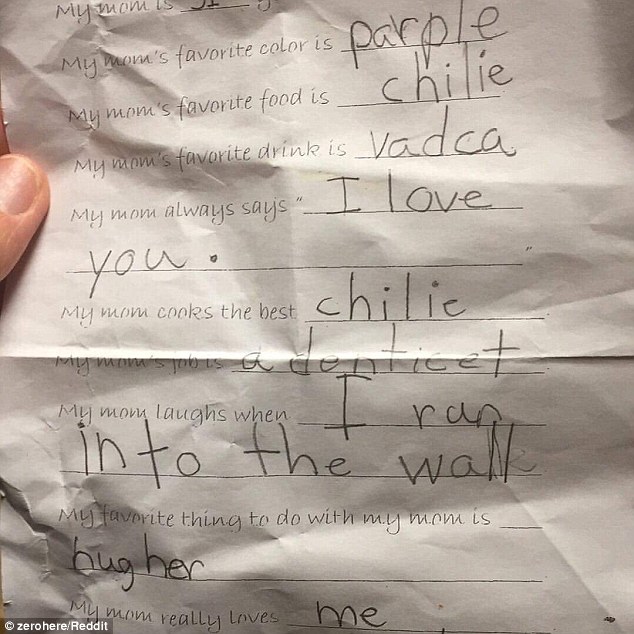 My mom is
My mom's favorite color is parple
My mom's favorite food is chilie
My mom's favorite drink is vadca
My mom always says " I love
you. "
My mom cooks the best chilie.
My mom's job is a denticet.
My mom laughs when I ran
into the wall
My favorite thing to do with my mom is
hug her
My mom really loves me
© zerohere/Reddit